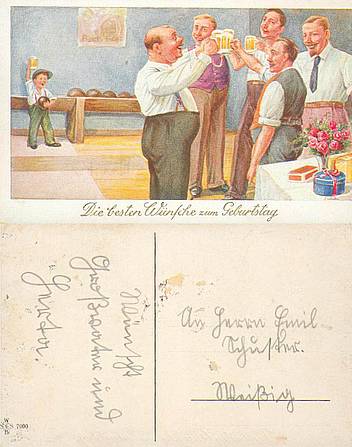 Die besten Wünsche zum Geburtstag
Wünscht
Großvater und
Herta.
An Herrn Emil
Schuster.
Weißig
W
S&S 7000
B